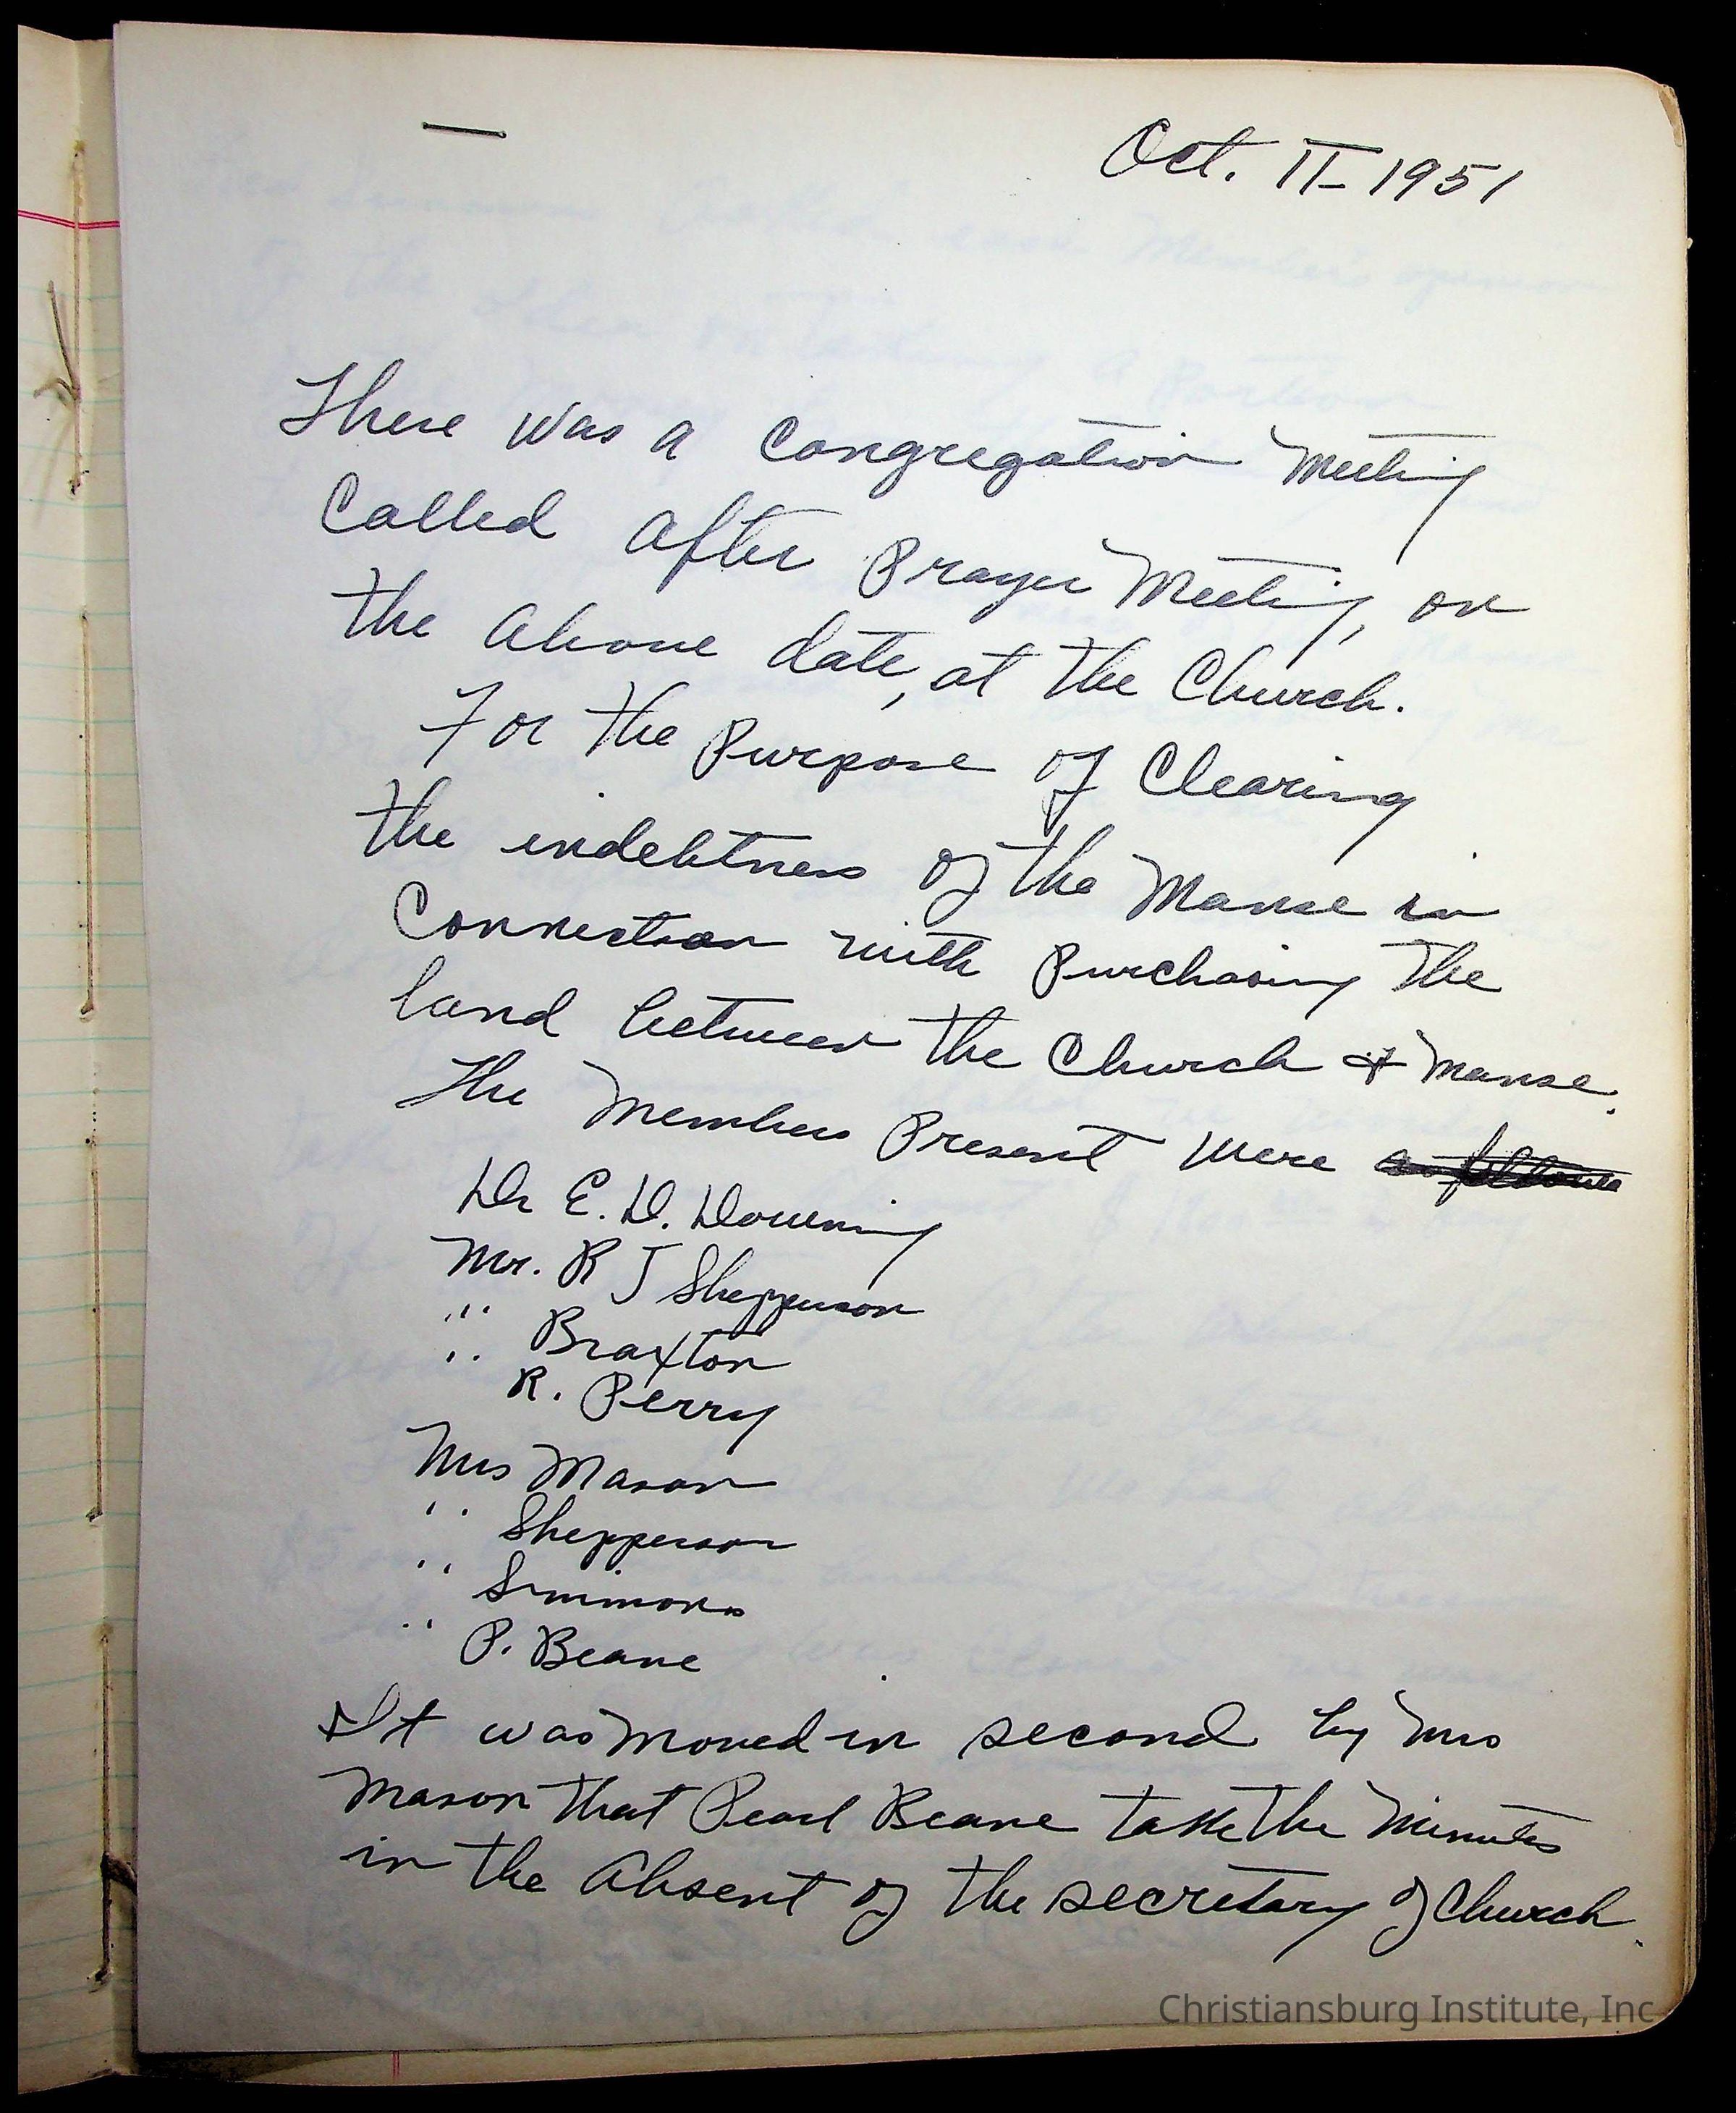 Oct. 11 - 1951
There was a Congregation Meeting
Called after Prayer Meeting, on
the above date, at the Church.
For the Purpose of Clearing
the indebtness of the Manse in
Connection with Purchasing the
land between the Church & Manse.
The Members Present were as follows
Dr E. D. Downing
Mr. R J Shepperson
" Braxton
" R. Perry
Mrs Mason
" Shepperson
" Simmons
" P. Beane
It was moved in second by Mrs
Mason that Pearl Beane take the Minutes
in the Absent of the secretary of Church.
Christiansburg Institute, Inc